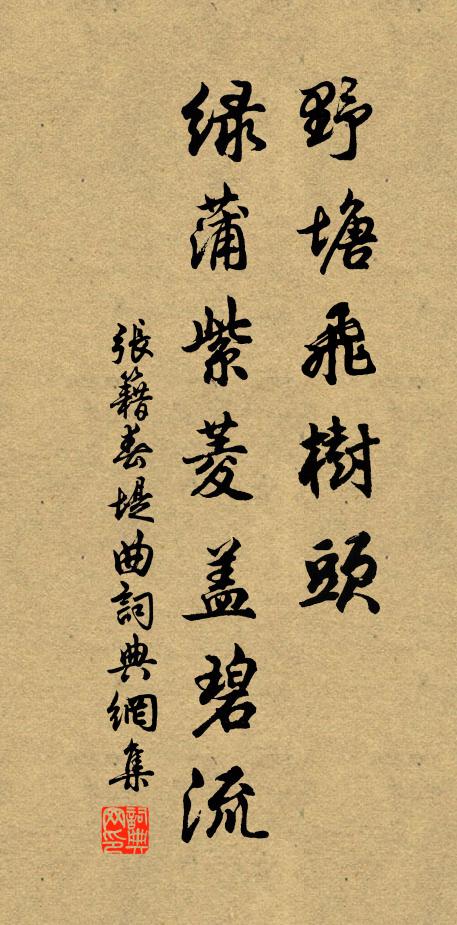 野塘飛樹頭
綠蒲紫菱蓋碧流
張籍春堤曲詞典網集
詞典网印